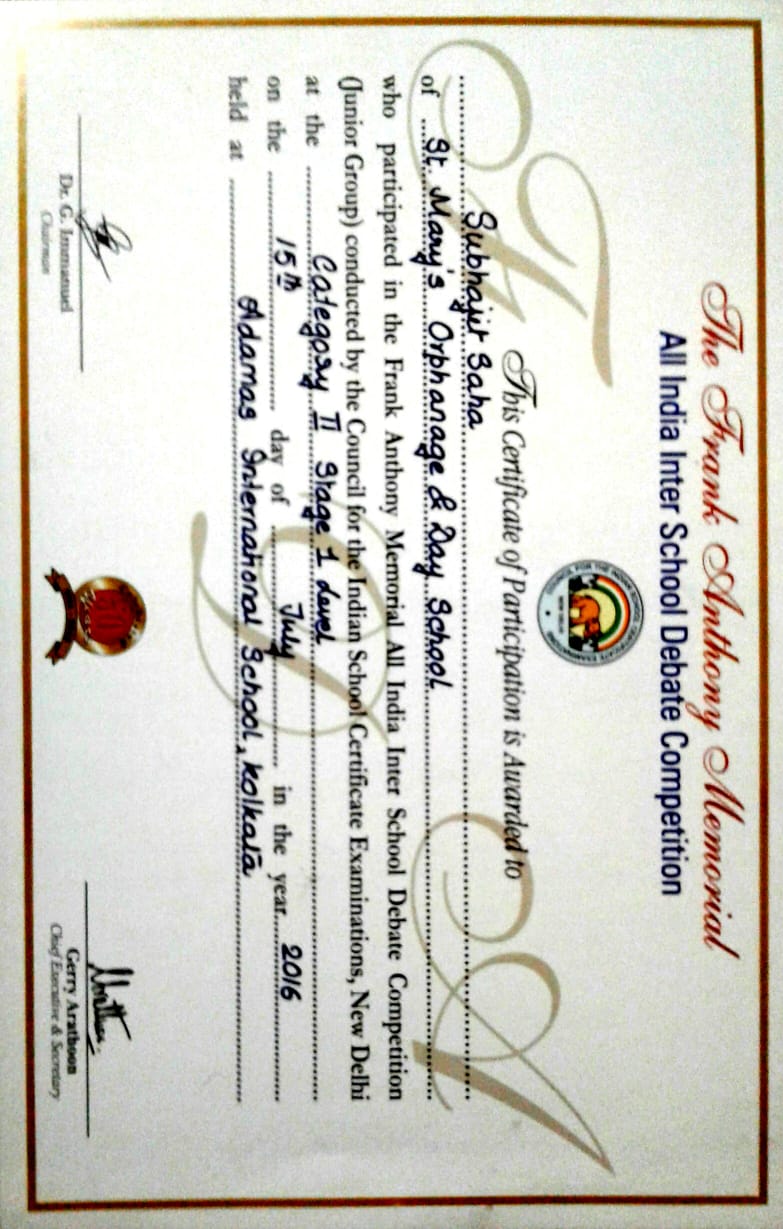 The Frank Anthony Memorial
All India Inter School Debate Competition
COUNCIL FOR THE INDIAN SCHOOL CERTIFICATE EXAMINATIONS
NEW DELHI
F A D
This Certificate of Participation is Awarded to
Subhajit Saha
of St. Mary's Orphanage & Day School
who participated in the Frank Anthony Memorial All India Inter School Debate Competition
(Junior Group) conducted by the Council for the Indian School Certificate Examinations, New Delhi
at the Category II Stage 1 Level
on the 15th day of July in the year 2016
held at Adamas International School, Kolkata
50
Years
Dr. G. Immanuel
Chairman
Gerry Arathoon
Chief Executive & Secretary